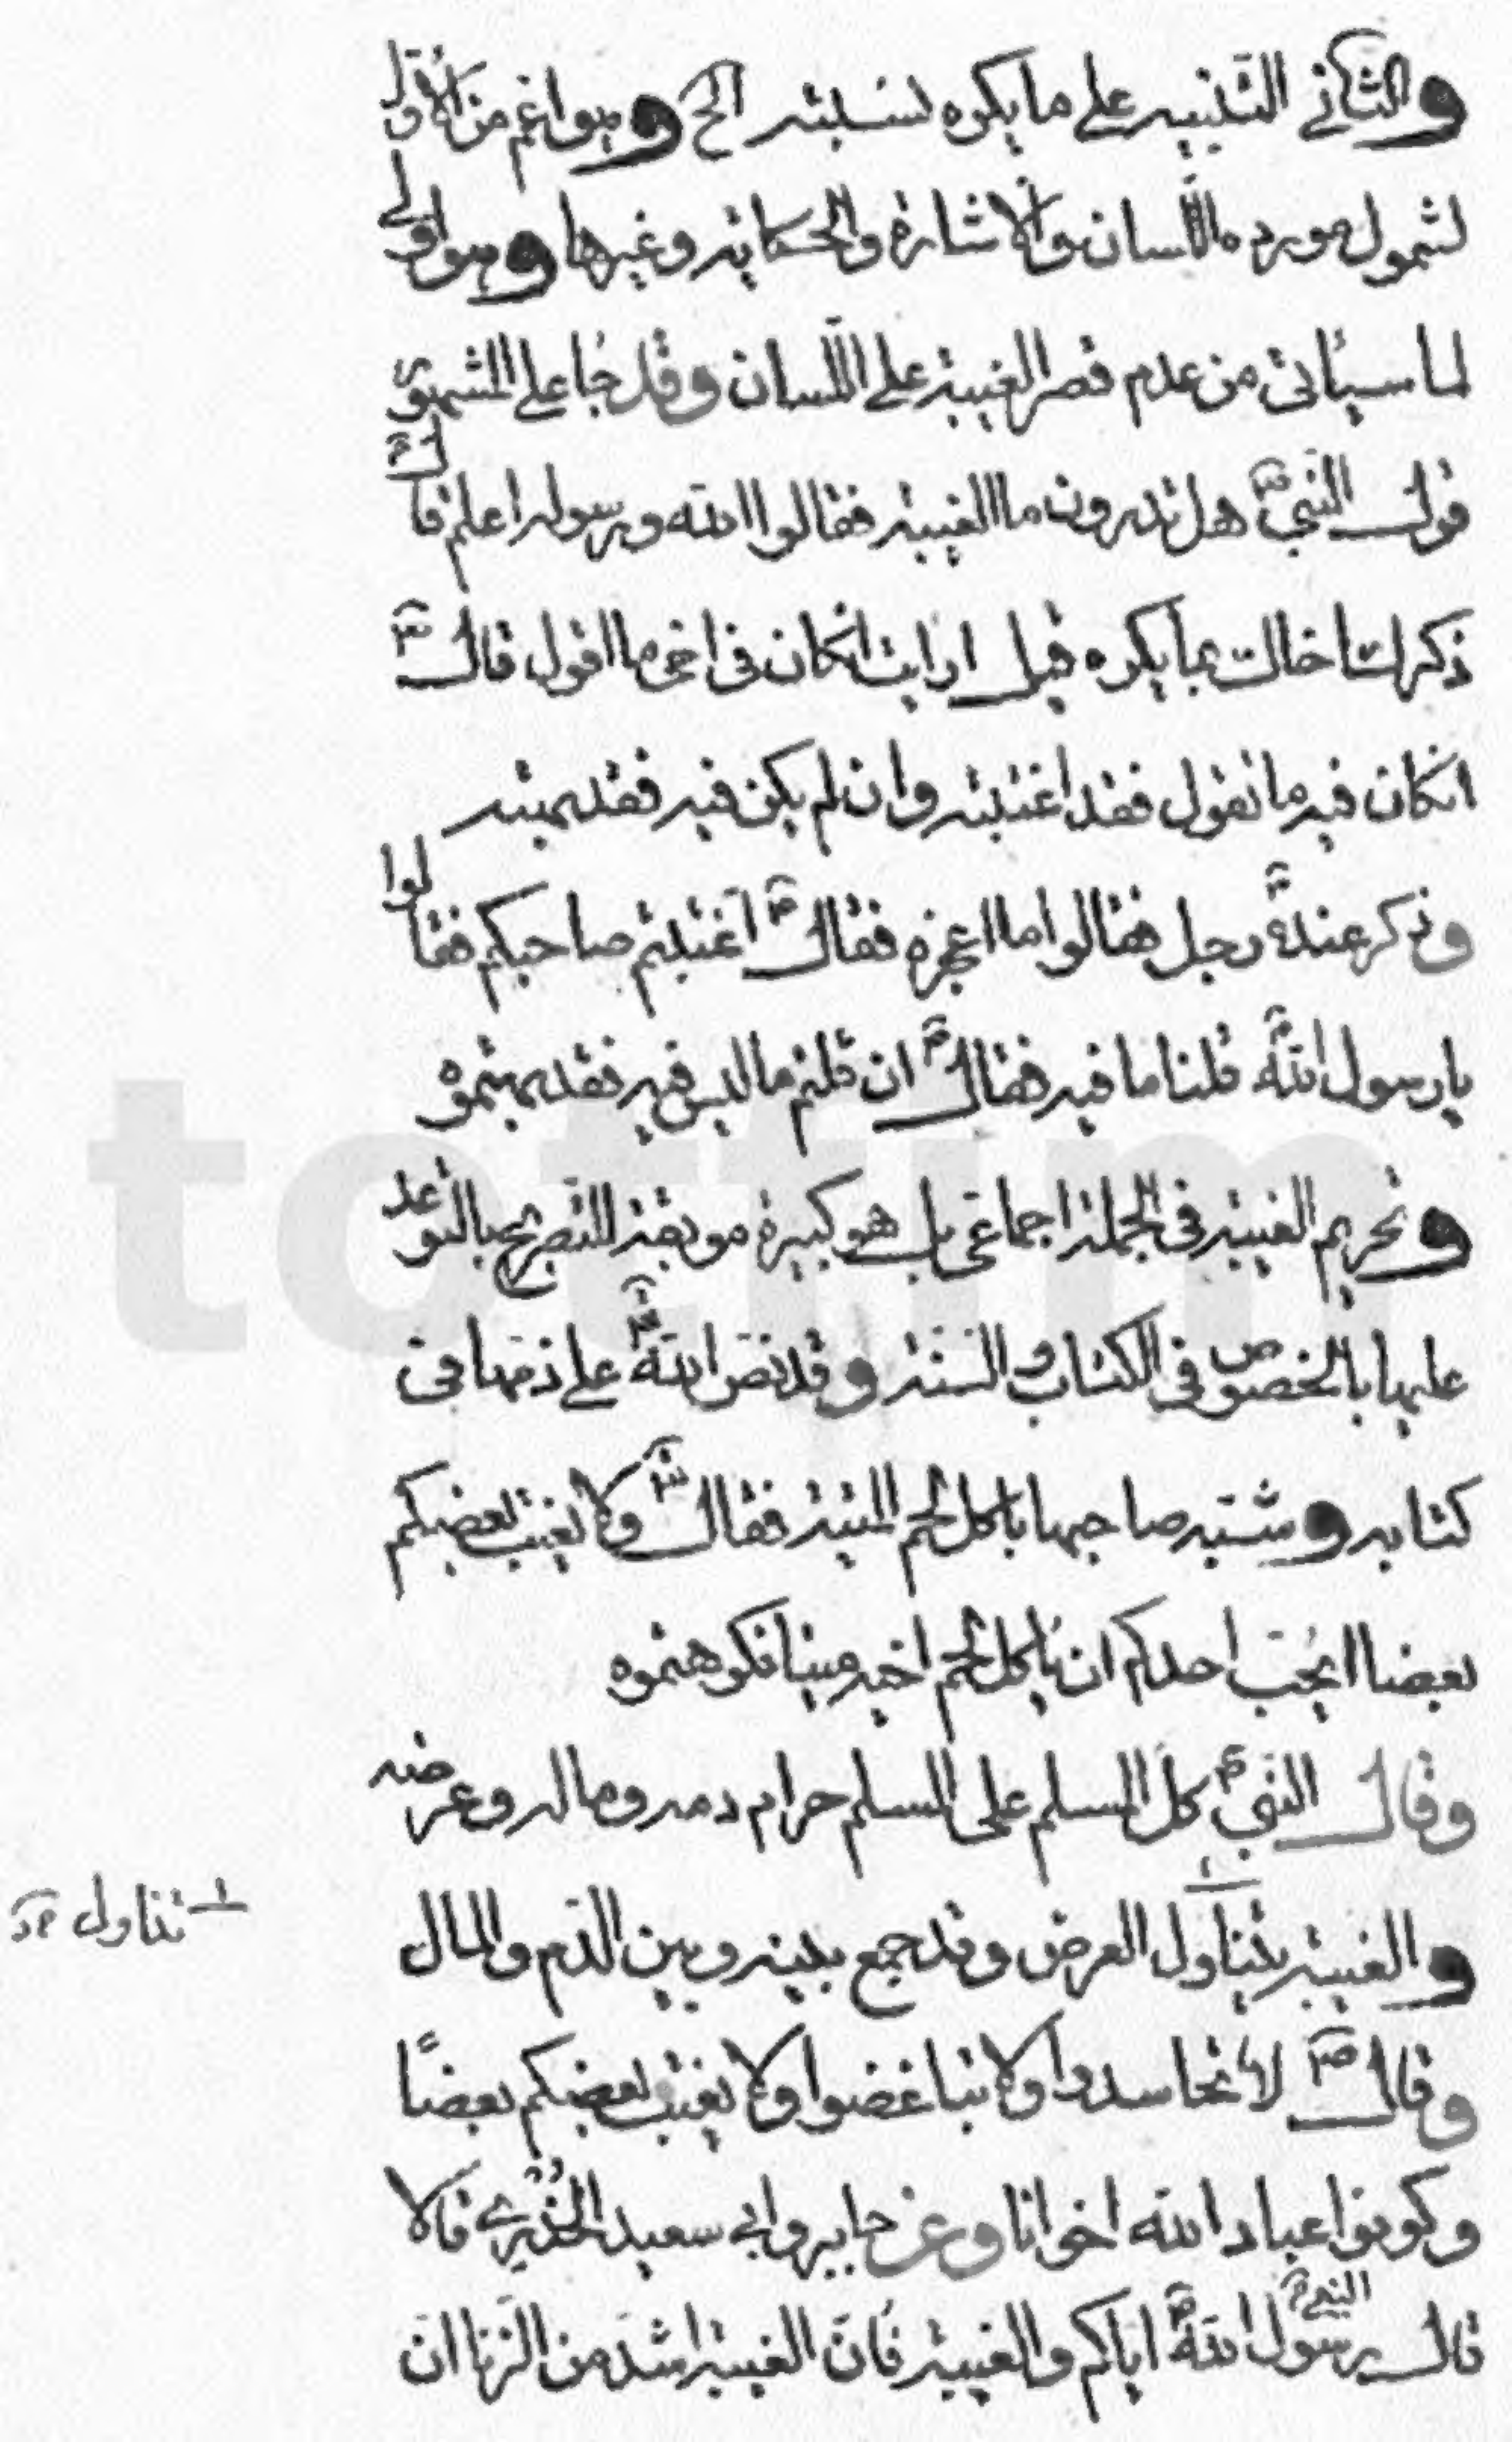 والثاني التنبيه على ما يكره نسبته الخ وهو اعم من الاول
لشمول مورده اللسان والاشارة والحكاية وغيرها وهو اولى
لما سيأتي من عدم قصر الغيبة على اللسان وقد جاء على المشهور
قول النبي ص هل تدرون ما الغيبة فقالوا الله ورسوله اعلم قال ص
ذكرك اخاك بما يكره قيل ارايت انكان في اخي ما اقول قال ص
انكان فيه ما تقول فقد اغتبته وان لم يكن فيه فقد بهته
وذكر عنده رجل فقالوا ما اعجزه فقال ص اغتبتم صاحبكم فقالوا
يا رسول الله ص قلنا ما فيه فقال ص ان قلتم ما ليس فيه فقد بهتموه
وتحريم الغيبة في الجملة اجماعي بل هو كبيرة موبقة للتصريح بالتوعد
عليها بالخصوص في الكتاب والسنة وقد نص الله على ذمها في
كتابه وشبه صاحبها باكل لحم الميتة فقال ولا يغتب بعضكم
بعضا ايحب احدكم ان ياكل لحم اخيه ميتا فكرهتموه
وقال النبي ص كل المسلم على المسلم حرام دمه وماله وعرضه
والغيبة يتناول العرض وقد جمع بينه وبين الدم والمال
تناول
وقال ص لا تحاسدوا ولا تباغضوا ولا يغتب بعضكم بعضًا
وكونوا عباد الله اخوانا وعن جابر وابي سعيد الخُدْري قالا
النبي ص
قال رسول الله ص اياكم والغيبة فان الغيبة اشد من الزنا ان